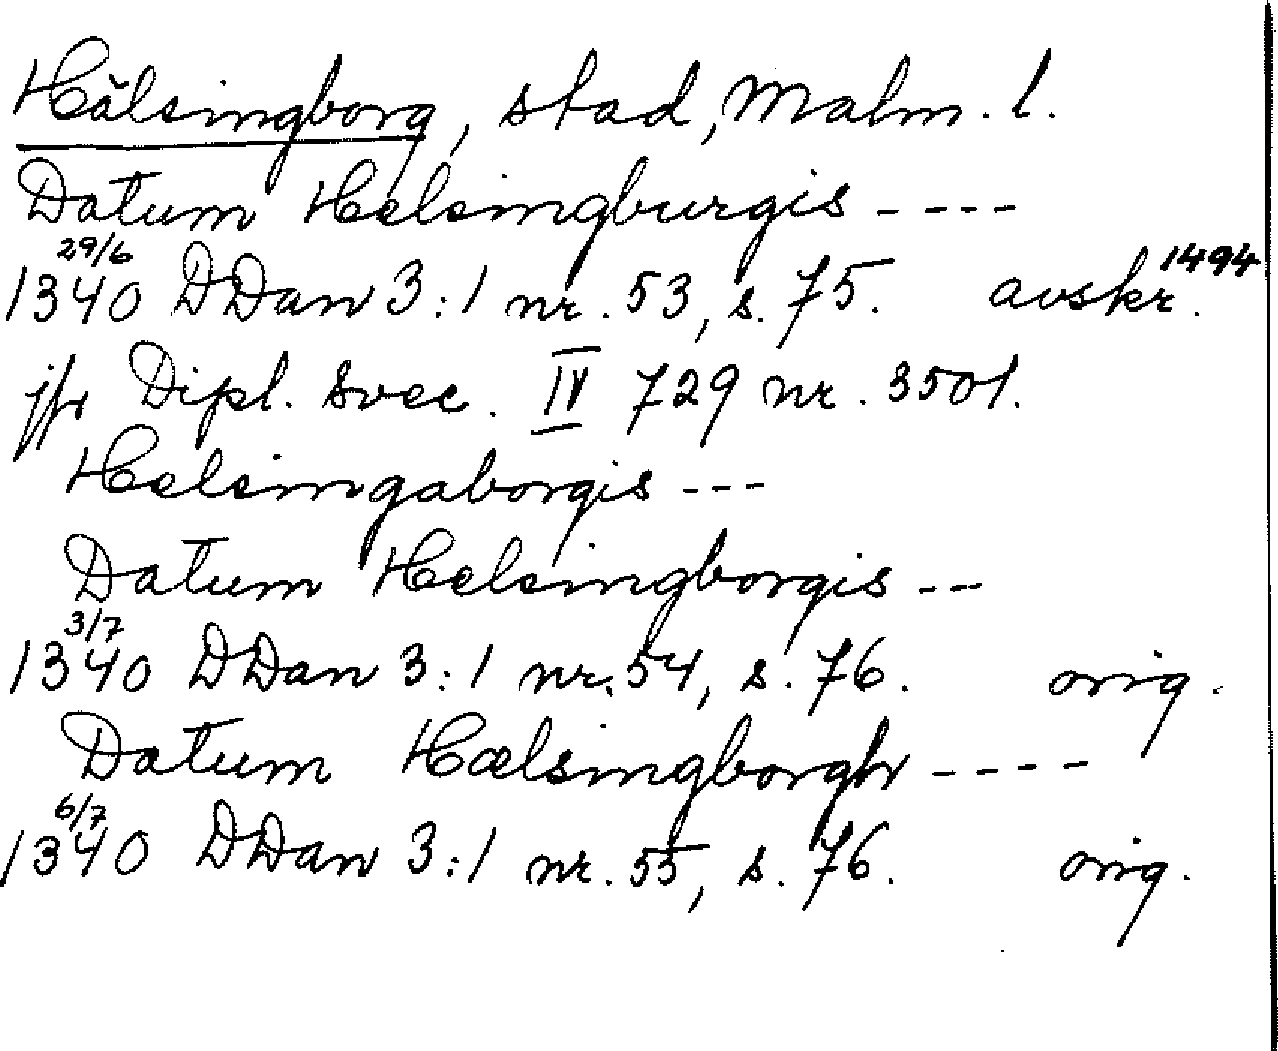 Hälsingborg, stad, Malm. l.
Datum Helsingburgis ----
29/6
1340 DDan 3:1 nr. 53, s. 75. avskr. 1494
jfr Dipl. Svec. IV 729 nr. 3501.
Helsingaborgis ---
Datum Helsingborgis --
3/7
1340 DDan 3:1 nr. 54, s. 76. orig.
Datum Hælsingborgh ----
6/7
1340 DDan 3:1 nr. 55, s. 76. orig.